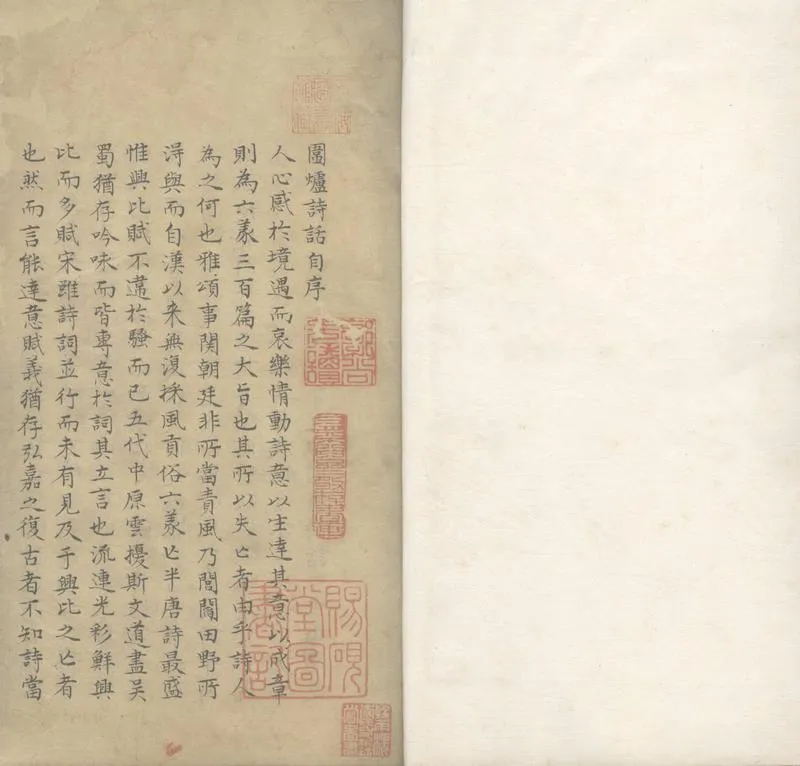 圍爐詩話自序
人心感於境遇而哀樂情動詩意以生達其意以成章
則為六義三百篇之大旨也其所以失亡者由乎詩人
為之何也雅頌事関朝廷非所當責風乃閭閻田野所
得與而自漢以来無復採風貢俗六義亡半唐詩最盛
惟興比賦不違於騷而已五代中原雲擾斯文道盡吴
蜀猶存吟咏而皆專意於詞其立言也流連光彩鮮興
比而多賦宋雖詩詞並行而未有見及于興比之亡者
也然而言能達意賦義猶存弘嘉之復古者不知詩當